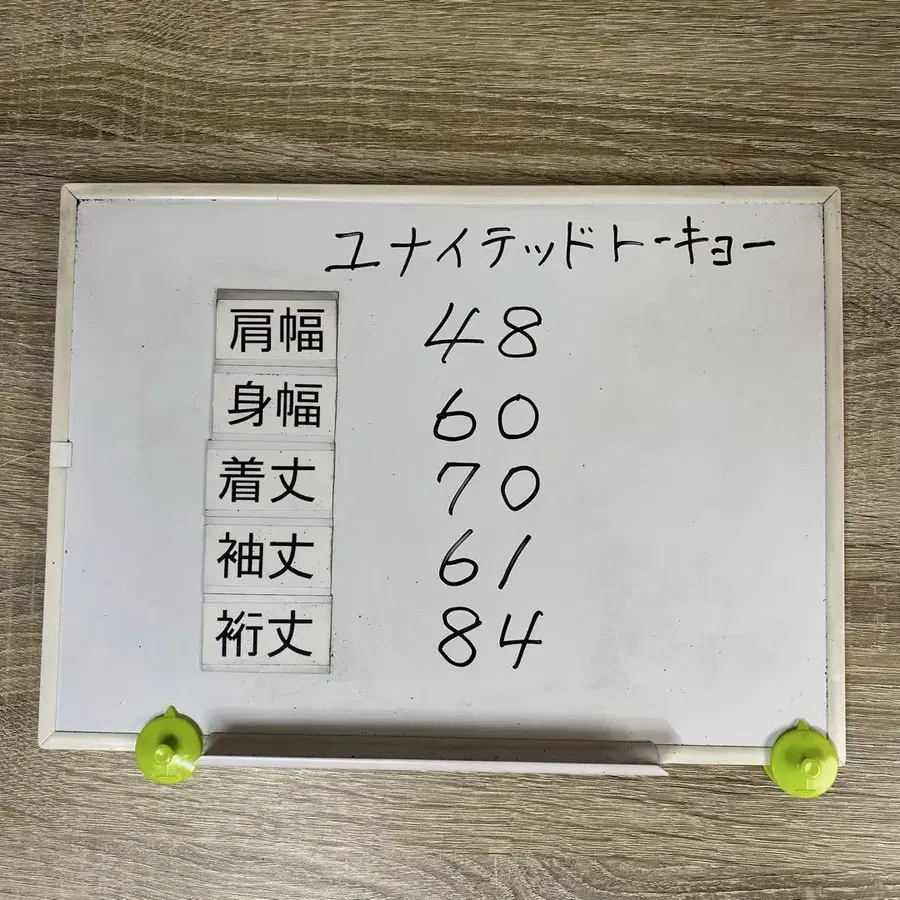 ユナイテッドトーキョー
肩幅 48
身幅 60
着丈 70
袖丈 61
裄丈 84